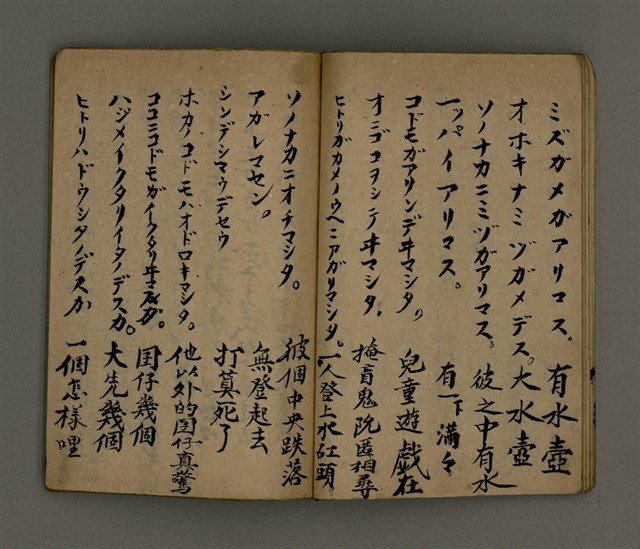 ミズガメガアリマス。 有水壺
オホキナミヅガメデス。 大水壺
ソノナカニミヅガアリマス。 彼之中有水
一ッパイアリマス。 有一下滿々
コドモガアソンデヰマシタ。 兒童遊戲在
オニゴコヲシテヰマシタ。 掩盲鬼阮匿相尋
ヒトリガカメノウヘニアガリマシタ。 一人登上水缸頭
ソノナカニオチマシタ。 彼個中央跌落
アガレマセン。 無登起去
シンデシマウデセウ 打算死了
ホカノコドモハオドロキマシタ。 他以外的囝仔真驚
ココニコドモガイクタリヰマスカ。 囝仔幾個
ハジメイクタリイタノデスカ。 大先幾個
ヒトリハドウシタノデスカ 一個怎樣哩